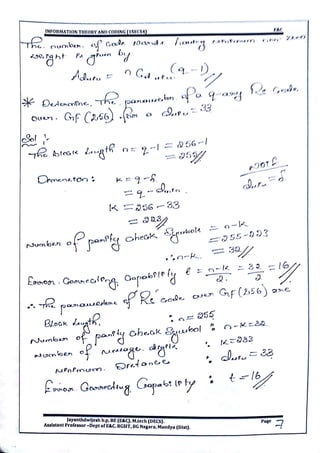 INFORMATION THEORY AND CODING (15EC54) E&C
The number of Code Words having minimum
weight is given by
Admin = nCdmin (q-1)
* Determine The parameter of a q-ary RS Code
over GF(256) for a dmin = 33
Sol:
The block length n = q-1 = 256-1
= 255//
Dimension: k = q-
= q - dmin
K = 256-33
= 223//
Number of parity check symbols = n-k
= 255-223
∴ n-k = 32//
Error Correcting Capability t = n-k/2 = 32/2 = 16//
∴ The parameter of RS code over GF(256) are
Block length : n = 255
Number of parity check symbol : n-k=32
Number of message digits : K=223
Minimum Distance : dmin = 33
Error Correcting Capability : t=16//
Jayanthdwijesh h.p. BE (E&C), M.tech (DECS).
Assistant Professor -Dept of E&C. BGSIT, BG Nagara, Mandya (Dist).
Page 7